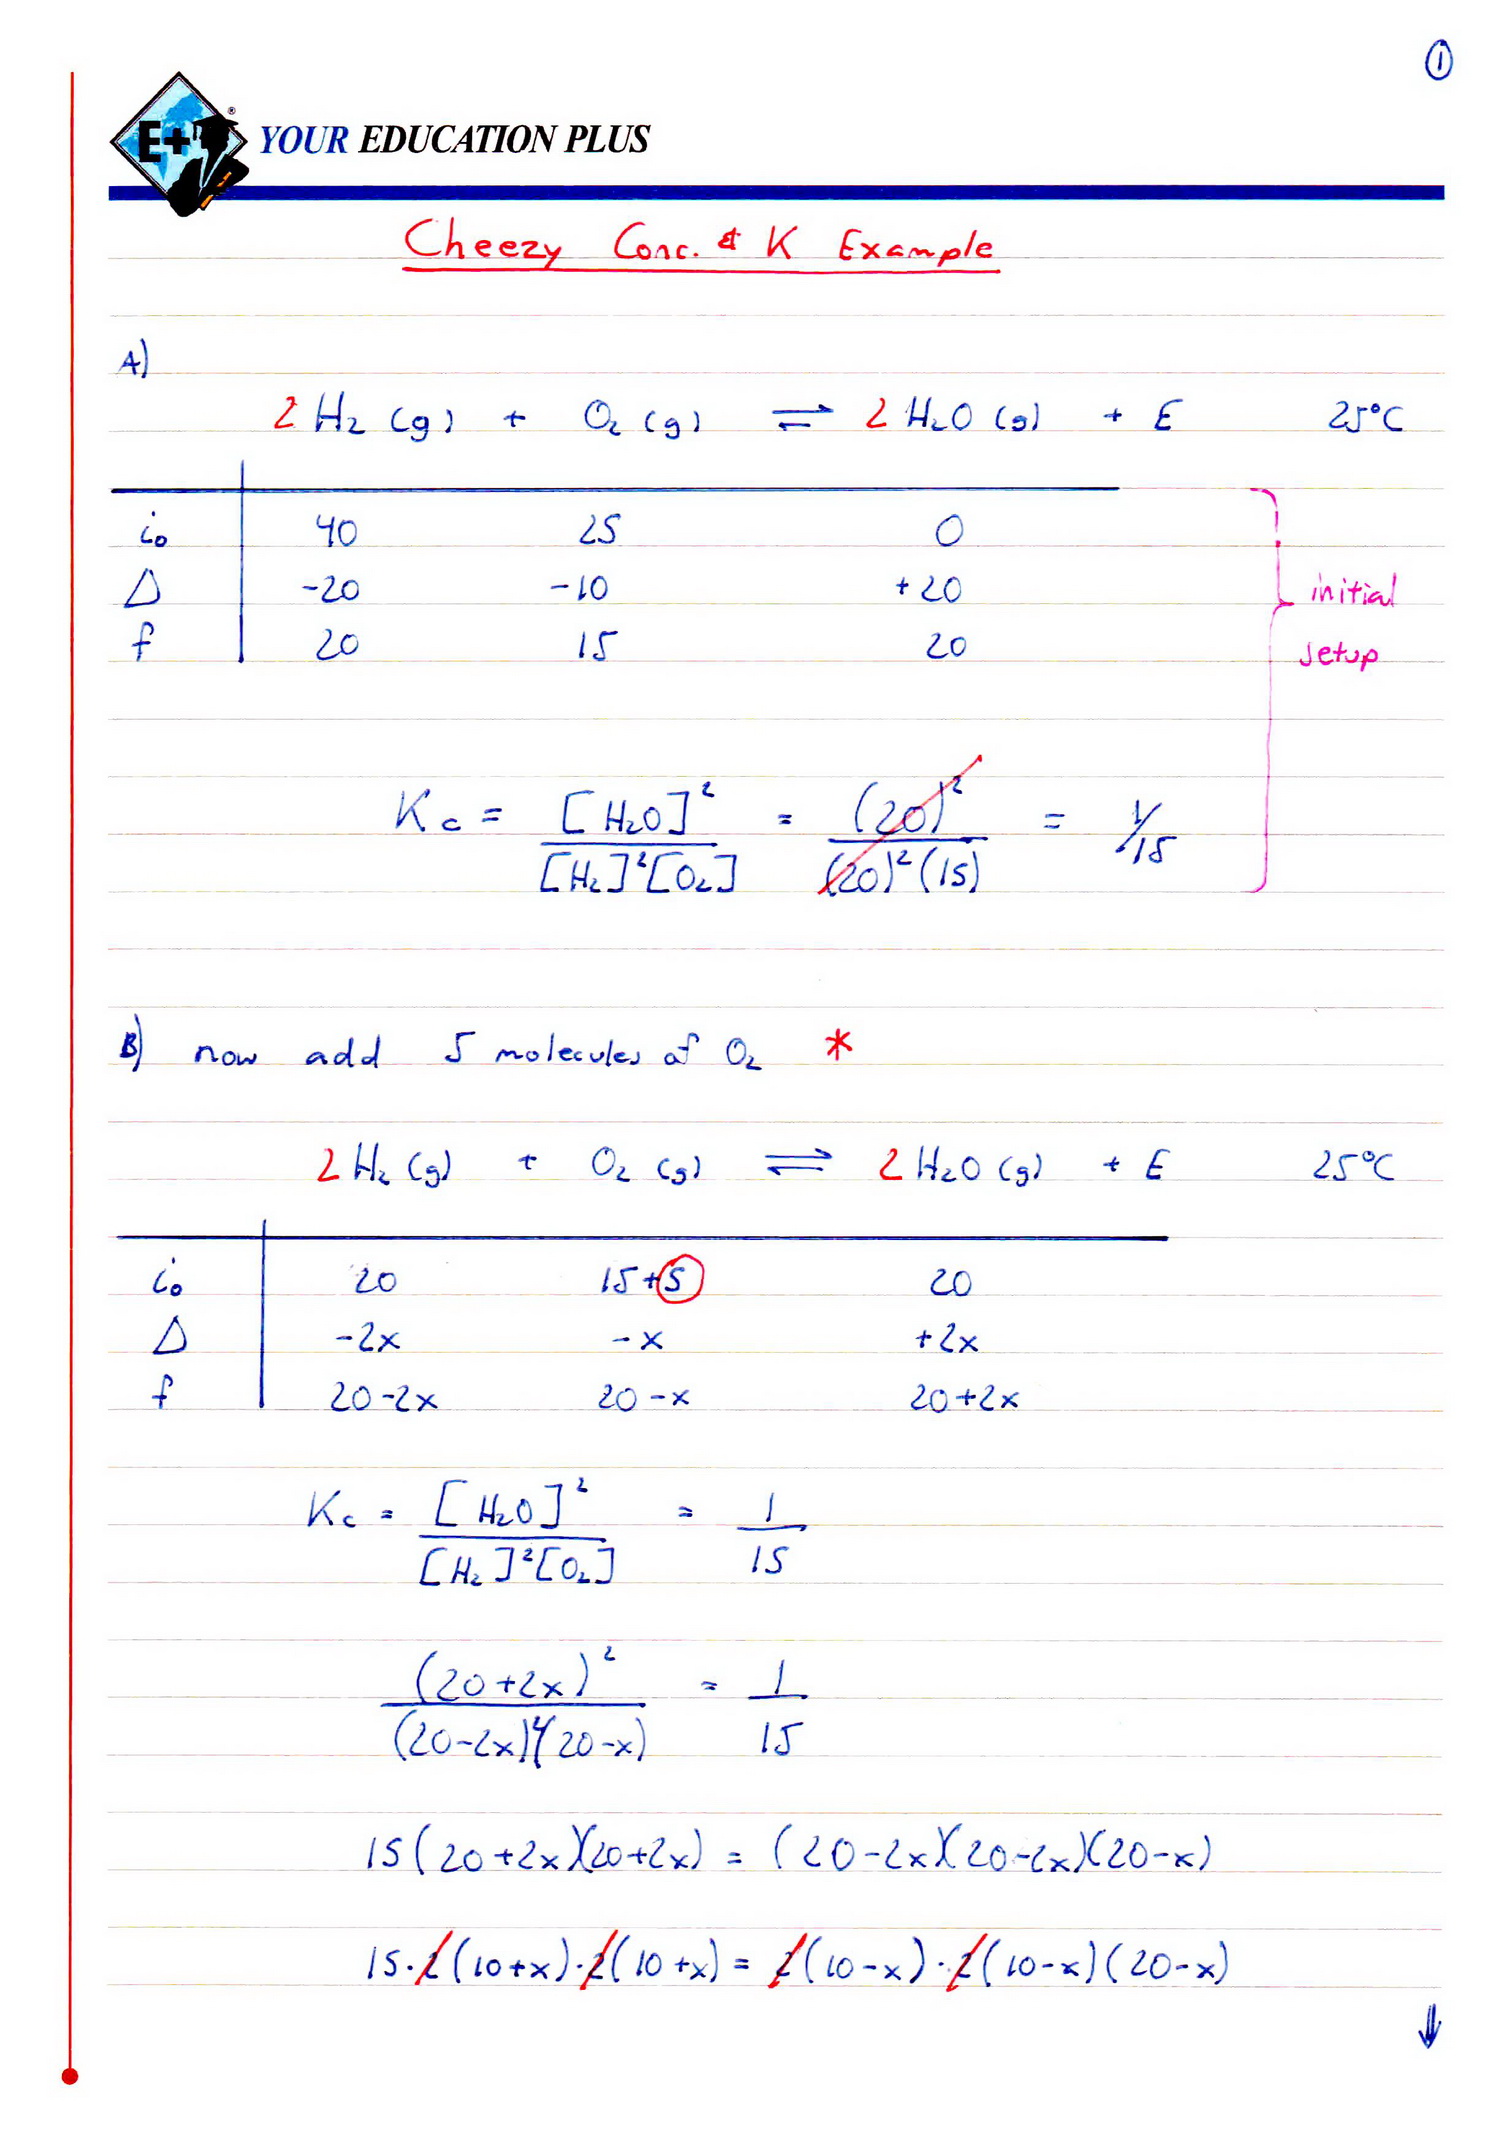 ①
E+® YOUR EDUCATION PLUS
Cheezy Conc. & K Example
A)
2 H₂ (g) + O₂ (g) ⇌ 2 H₂O (g) + E 25°C
i₀ 40 25 0
Δ -20 -10 +20
f 20 15 20
initial
setup
Kc = [H₂O]² / [H₂]²[O₂] = (20)² / (20)²(15) = 1/15
B) now add 5 molecules of O₂ *
2 H₂ (g) + O₂ (g) ⇌ 2 H₂O (g) + E 25°C
i₀ 20 15+5 20
Δ -2x -x +2x
f 20-2x 20-x 20+2x
Kc = [H₂O]² / [H₂]²[O₂] = 1 / 15
(20+2x)² / (20-2x)²(20-x) = 1 / 15
15(20+2x)(20+2x) = (20-2x)(20-2x)(20-x)
15·2(10+x)·2(10+x) = 2(10-x)·2(10-x)(20-x)
⇓